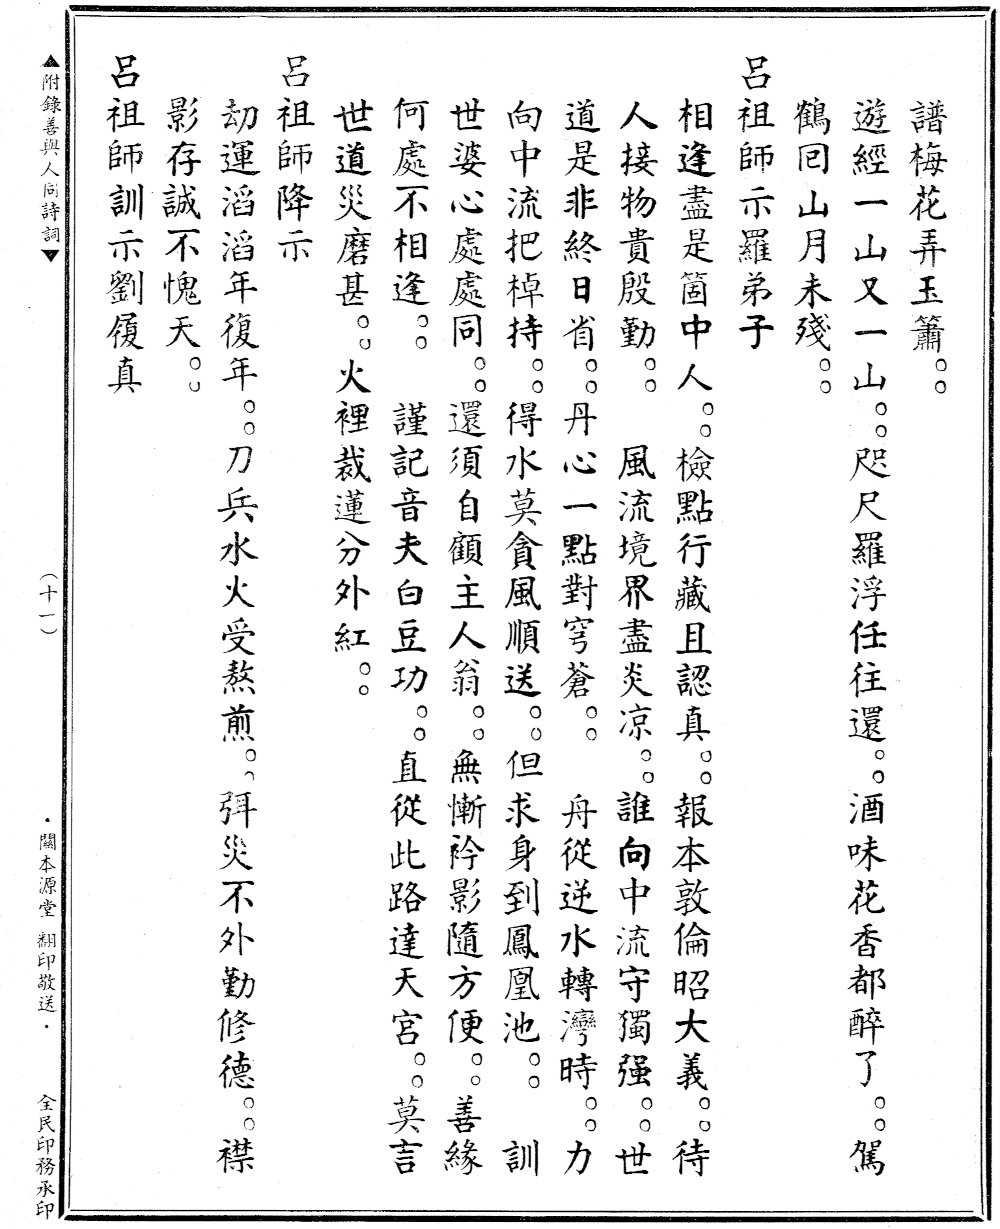 譜梅花弄玉簫。。
遊經一山又一山。。咫尺羅浮任往還。。酒味花香都醉了。。駕
鶴囘山月未殘。。
呂祖師示羅弟子
相逢盡是箇中人。。檢點行藏且認真。。報本敦倫昭大義。。待
人接物貴殷勤。。　風流境界盡炎凉。。誰向中流守獨强。。世
道是非終日省。。丹心一點對穹蒼。。　舟從逆水轉灣時。。力
向中流把棹持。。得水莫貪風順送。。但求身到鳳凰池。。　訓
世婆心處處同。。還須自顧主人翁。。無慚衿影隨方便。。善緣
何處不相逢。。　謹記音夫白豆功。。直從此路達天宮。。莫言
世道災磨甚。。火裡裁蓮分外紅。。
呂祖師降示
劫運滔滔年復年。。刀兵水火受熬煎。。弭災不外勤修德。。襟
影存誠不愧天。。
呂祖師訓示劉履真
▲附錄善與人同詩詞▼
（十一）
·關本源堂 翻印敬送·
全民印務承印